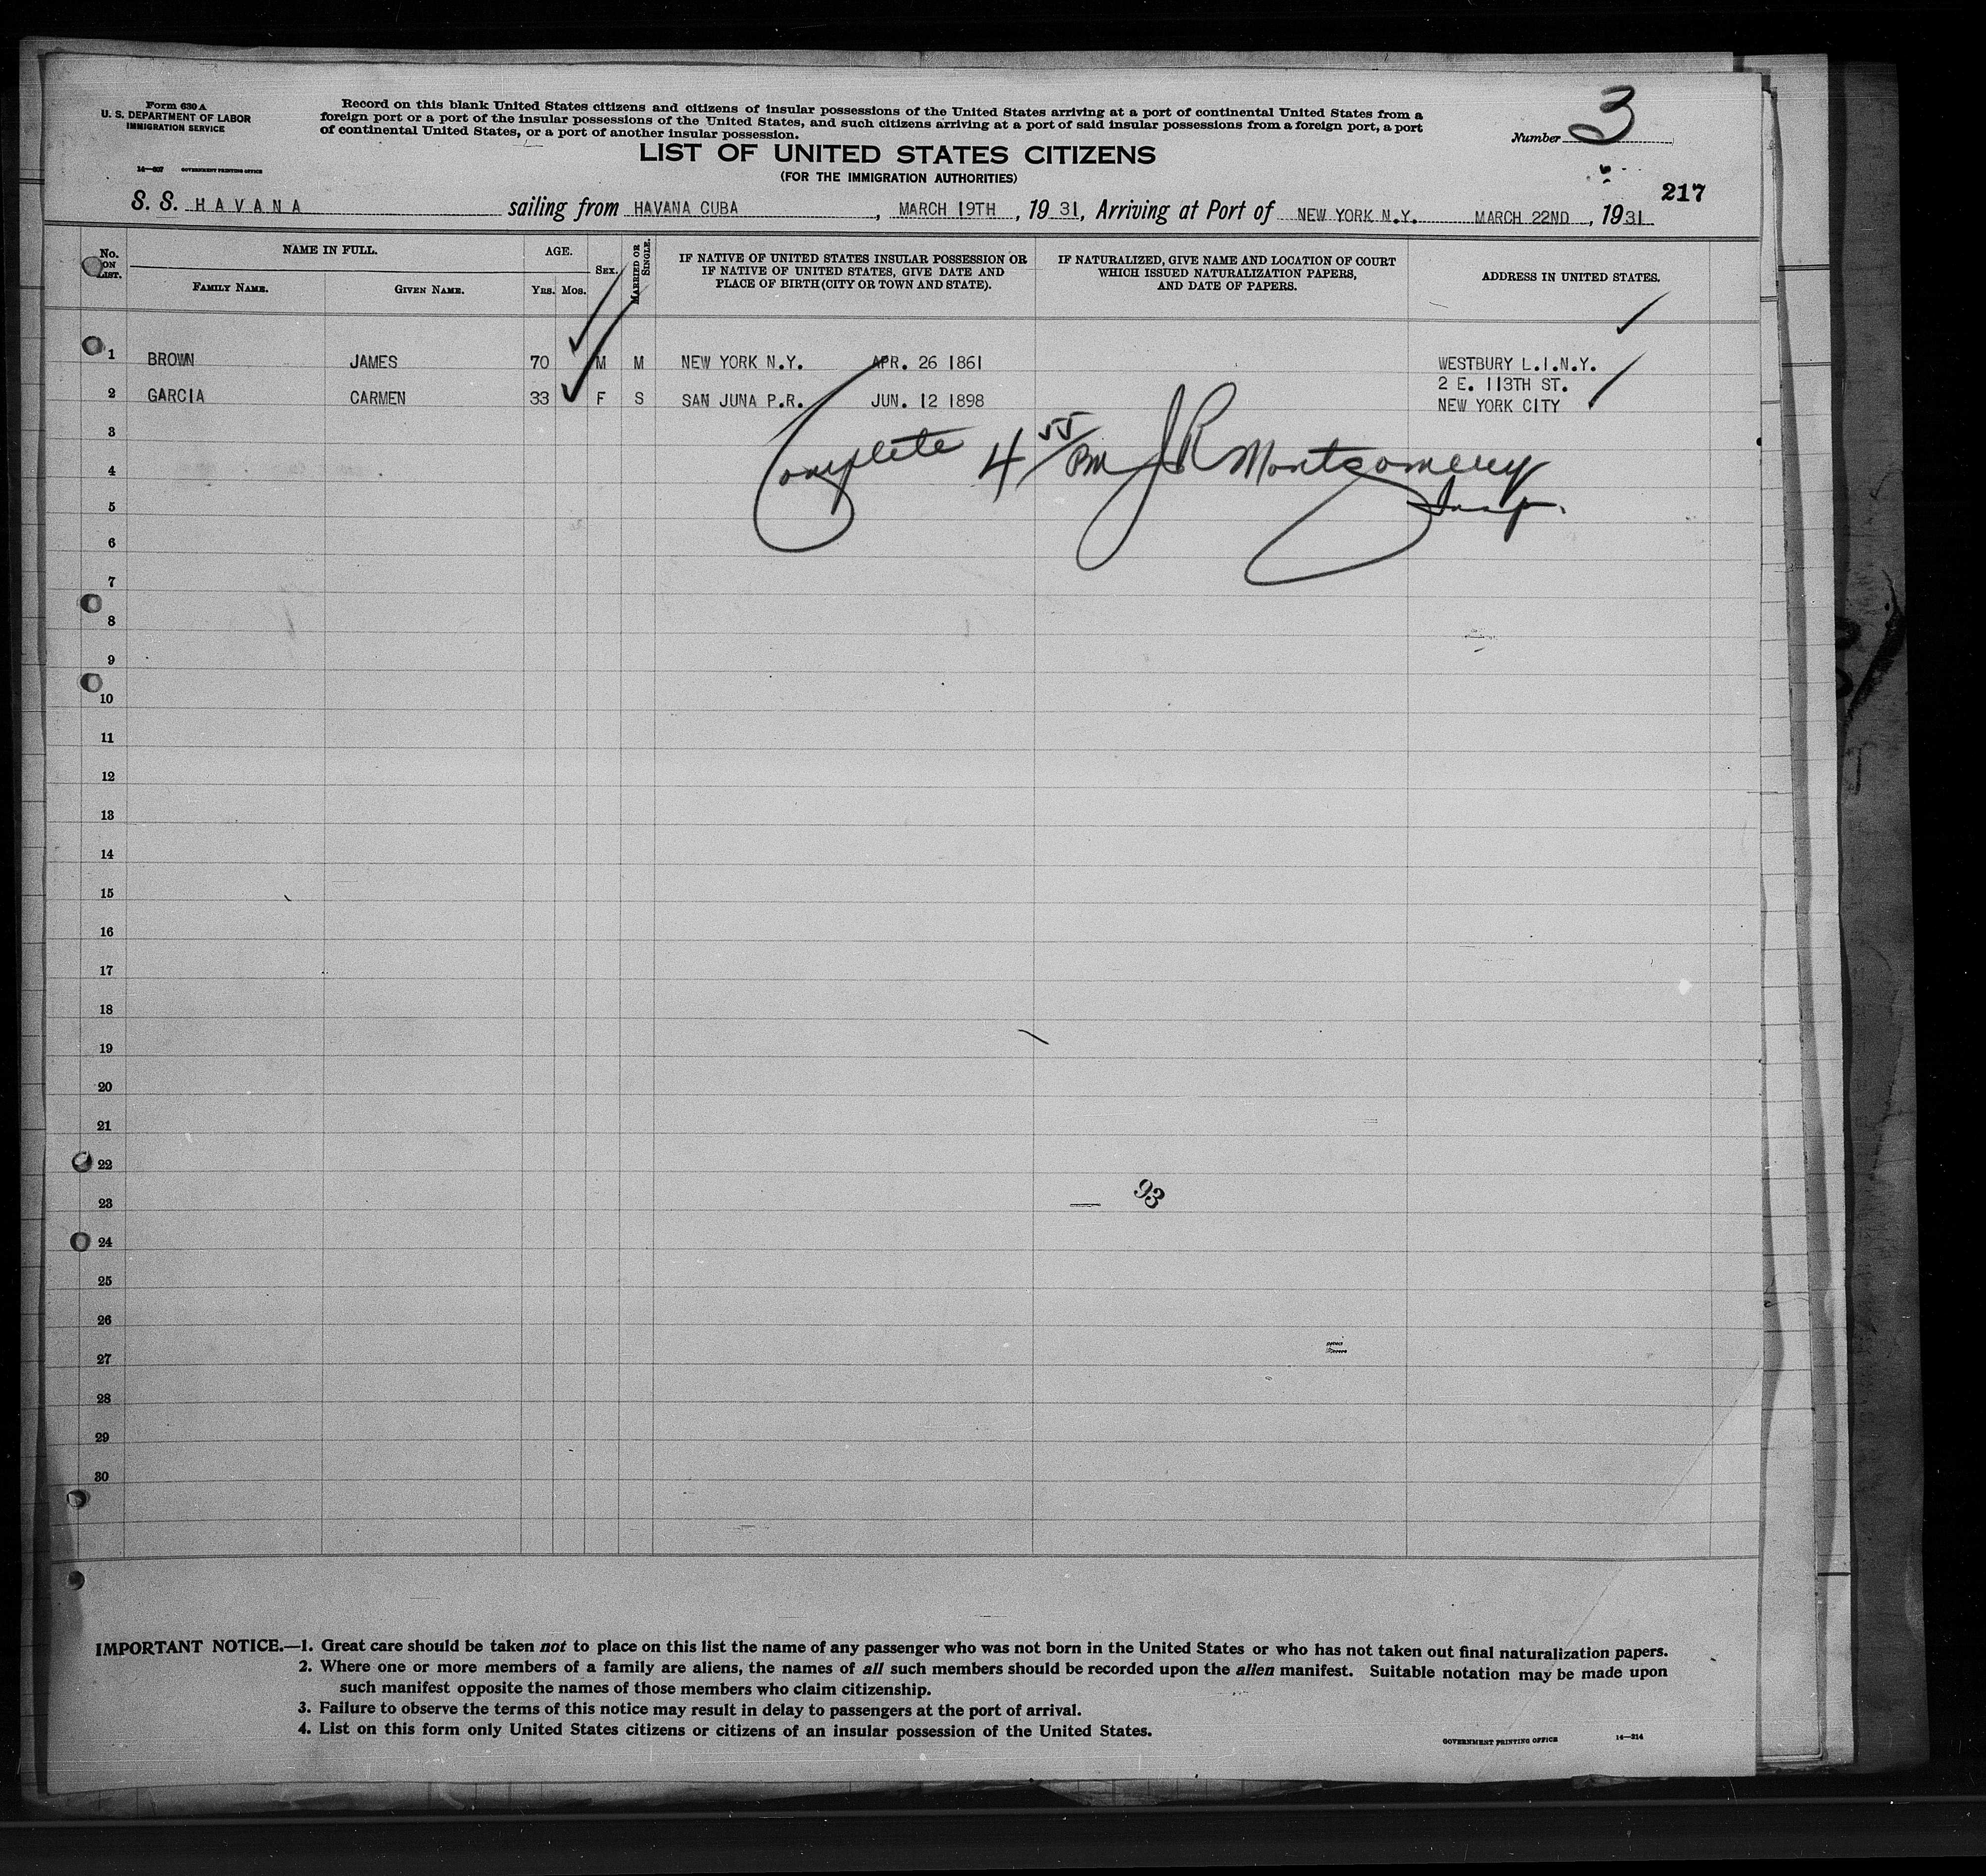 Form 630 A
U. S. DEPARTMENT OF LABOR
IMMIGRATION SERVICE
14—607 GOVERNMENT PRINTING OFFICE
Record on this blank United States citizens and citizens of insular possessions of the United States arriving at a port of continental United States from a
foreign port or a port of the insular possessions of the United States, and such citizens arriving at a port of said insular possessions from a foreign port, a port
of continental United States, or a port of another insular possession.
Number 3
LIST OF UNITED STATES CITIZENS
(FOR THE IMMIGRATION AUTHORITIES)
217
S. S. HAVANA sailing from HAVANA CUBA, MARCH 19TH, 1931, Arriving at Port of NEW YORK N.Y. MARCH 22ND, 1931
No. ON LIST.
NAME IN FULL.
FAMILY NAME. GIVEN NAME.
AGE.
YRS. MOS.
SEX.
MARRIED OR SINGLE.
IF NATIVE OF UNITED STATES INSULAR POSSESSION OR
IF NATIVE OF UNITED STATES, GIVE DATE AND
PLACE OF BIRTH (CITY OR TOWN AND STATE).
IF NATURALIZED, GIVE NAME AND LOCATION OF COURT
WHICH ISSUED NATURALIZATION PAPERS,
AND DATE OF PAPERS.
ADDRESS IN UNITED STATES.
1 BROWN JAMES 70 M M NEW YORK N.Y. APR. 26 1861 WESTBURY L.I.N.Y.
2 GARCIA CARMEN 33 F S SAN JUNA P.R. JUN. 12 1898 2 E. 113TH ST.
NEW YORK CITY
3
Complete 4 55/PM J R Montgomery
Insp.
4
5
6
7
8
9
10
11
12
13
14
15
16
17
18
19
20
21
22
23
93
24
25
26
27
28
29
30
IMPORTANT NOTICE.—1. Great care should be taken not to place on this list the name of any passenger who was not born in the United States or who has not taken out final naturalization papers.
2. Where one or more members of a family are aliens, the names of all such members should be recorded upon the alien manifest. Suitable notation may be made upon
such manifest opposite the names of those members who claim citizenship.
3. Failure to observe the terms of this notice may result in delay to passengers at the port of arrival.
4. List on this form only United States citizens or citizens of an insular possession of the United States.
GOVERNMENT PRINTING OFFICE 14—214